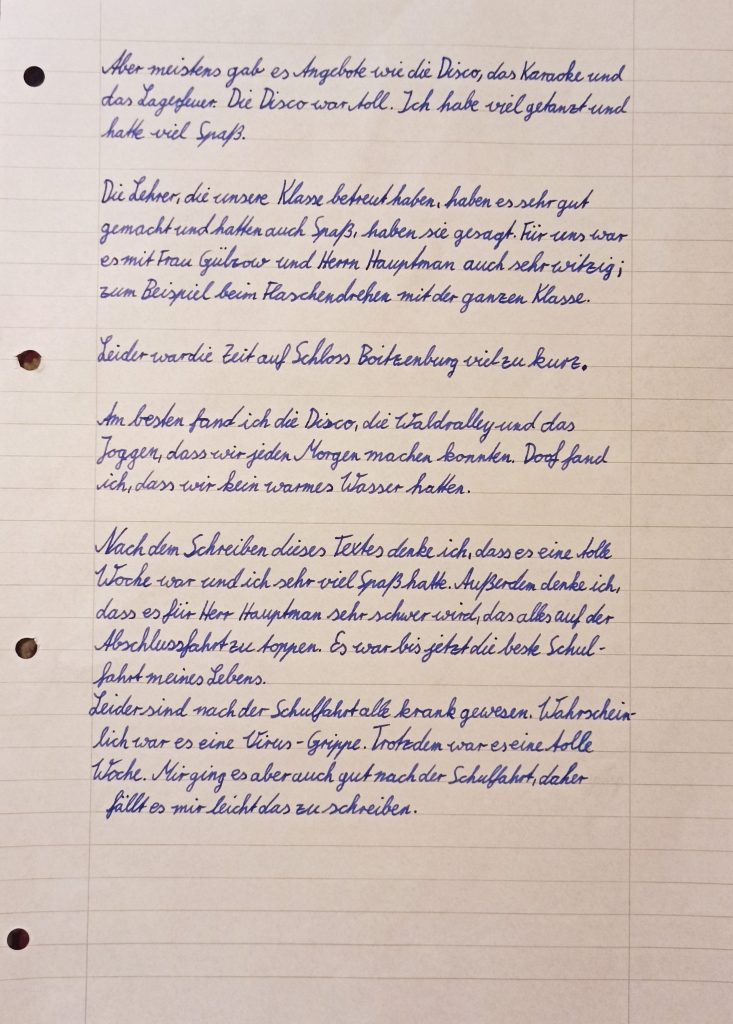 Aber meistens gab es Angebote wie die Disco, das Karaoke und
das Lagerfeuer. Die Disco war toll. Ich habe viel getanzt und
hatte viel Spaß.
Die Lehrer, die unsere Klasse betreut haben, haben es sehr gut
gemacht und hatten auch Spaß, haben sie gesagt. Für uns war
es mit Frau Gülzow und Herrn Hauptman auch sehr witzig;
zum Beispiel beim Flaschendrehen mit der ganzen Klasse.
Leider war die Zeit auf Schloss Boitzenburg viel zu kurz.
Am besten fand ich die Disco, die Waldralley und das
Joggen, dass wir jeden Morgen machen konnten. Doof fand
ich, dass wir kein warmes Wasser hatten.
Nach dem Schreiben dieses Textes denke ich, dass es eine tolle
Woche war und ich sehr viel Spaß hatte. Außerdem denke ich,
dass es für Herr Hauptman sehr schwer wird, das alles auf der
Abschlussfahrt zu toppen. Es war bis jetzt die beste Schul-
fahrt meines Lebens.
Leider sind nach der Schulfahrt alle krank gewesen. Wahrschein-
lich war es eine Virus-Grippe. Trotzdem war es eine tolle
Woche. Mir ging es aber auch gut nach der Schulfahrt, daher
fällt es mir leicht das zu schreiben.